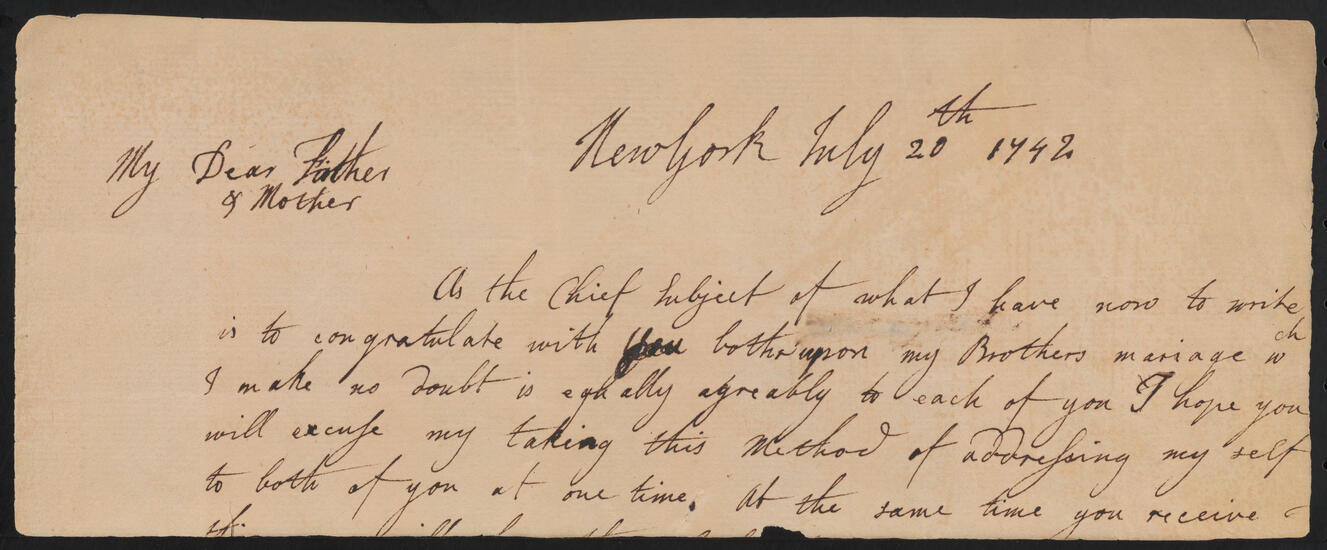 NewYork July 20th 1742
My Dear Father
& Mother
As the Chief Subject of what I have now to write
is to congratulate with you both upon my Brothers mariage wch
I make no doubt is equally agreably to each of you I hope you
will excuse my taking this Method of addressing my self
to both of you at one time. At the same time you receive